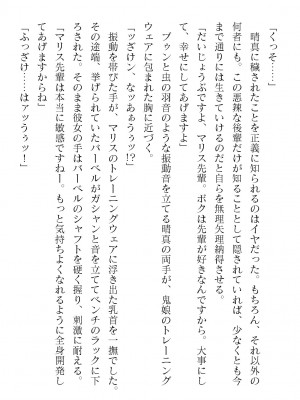 「くっそ……」
晴真に穢されたことを正義に知られるのはイヤだった。もちろん、それ以外の
何者にも。この悪辣な後輩だけが知ることとして隠されていれば、少なくとも今
まで通りには生きていけるのだと自らを無理矢理納得させる。
「だいじょうぶですよ、マリス先輩。ボクは先輩が好きなんですから。大事にし
て、幸せにしてあげますよ」
ブゥンと虫の羽音のような振動音を立てる晴真の両手が、鬼娘のトレーニング
ウェアに包まれた胸に近づく。
「ッざけン、なッあぁうッ!?」
振動を帯びた手が、マリスのトレーニングウェアに浮き出た乳首を一撫でした。
その途端、挙げられていたバーベルがガシャンと音を立ててベンチのラックに下
ろされた。そのまま彼女の手はバーベルのシャフトを硬く握り、刺激に耐える。
「マリス先輩は本当に敏感ですねー。もっと気持ちよくなれるように全身開発し
てあげますからね」
「ふっざけ……はァッうぅッ!」